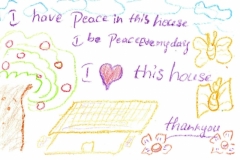 I have Peace in this house
I be Peace everyday
I this house
thankyou